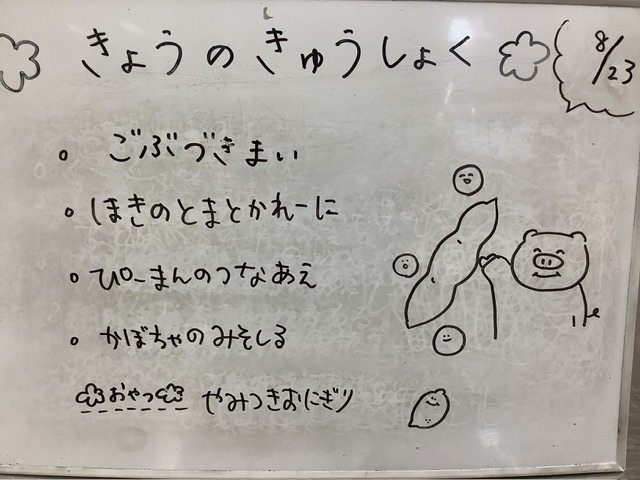 きょうのきゅうしょく
8/23
ごぶづきまい
ほきのとまとかれーに
ぴーまんのつなあえ
かぼちゃのみそしる
おやつ やみつきおにぎり